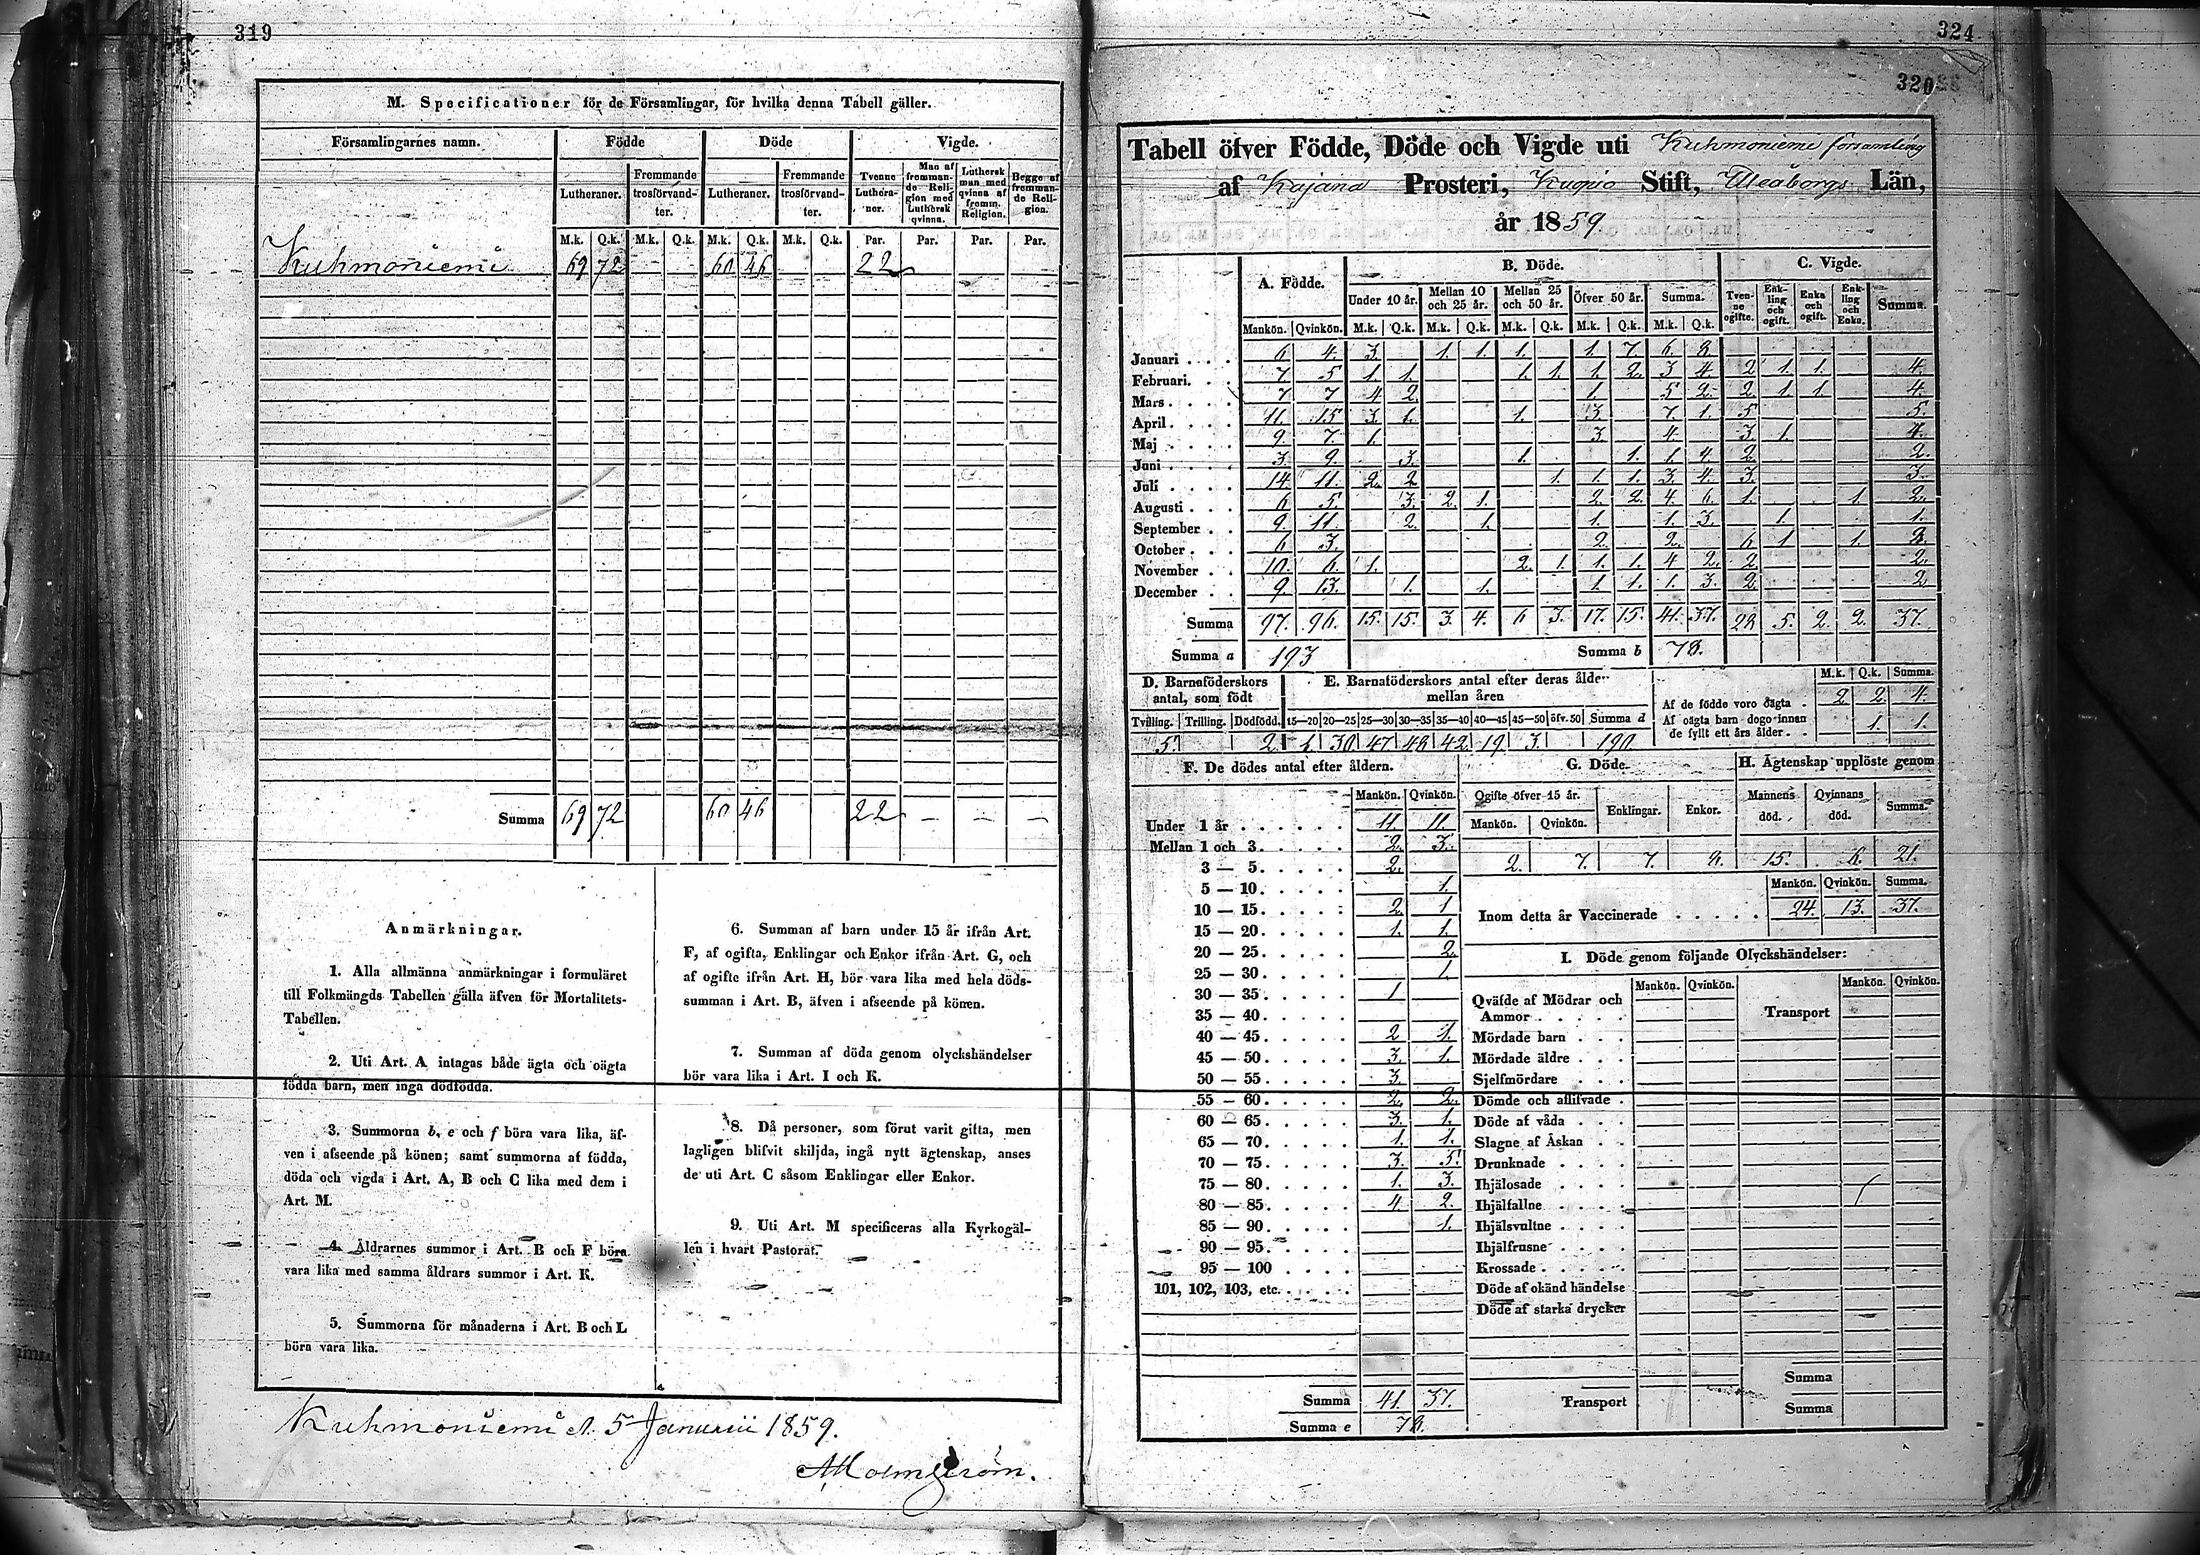 319
M. Specificationer för de Församlingar, för hvilka denna Tabell gäller.
Församlingarnes namn. Födde Döde Vigde.
Lutheraner. Fremmande trosförvandter. Lutheraner. Fremmande trosförvandter. Tvenne Lutheraner. Man af fremmande Religion med Luthersk qvinna. Luthersk man med qvinna af fremm. Religion. Begge af fremmande Religion.
M.k. Q.k. M.k. Q.k. M.k. Q.k. M.k. Q.k. Par. Par. Par. Par.
Kuhmoniemi 69 72 60 46 22
Summa 69 72 60 46 22 — — —
Anmärkningar.
1. Alla allmänna anmärkningar i formuläret
till Folkmängds Tabellen gälla äfven för Mortalitets-
Tabellen.
2. Uti Art. A intagas både ägta och oägta
födda barn, men inga dödfödda.
3. Summorna b, e och f böra vara lika, äf-
ven i afseende på könen; samt summorna af födda,
döda och vigda i Art. A, B och C lika med dem i
Art. M.
4. Åldrarnes summor i Art. B och F böra
vara lika med samma åldrars summor i Art. K.
5. Summorna för månaderna i Art. B och L
böra vara lika.
6. Summan af barn under 15 år ifrån Art.
F, af ogifta, Enklingar och Enkor ifrån Art. G, och
af ogifte ifrån Art. H, bör vara lika med hela döds-
summan i Art. B, äfven i afseende på könen.
7. Summan af döda genom olyckshändelser
bör vara lika i Art. I och K.
8. Då personer, som förut varit gifta, men
lagligen blifvit skiljda, ingå nytt ägtenskap, anses
de uti Art. C såsom Enklingar eller Enkor.
9. Uti Art. M specificeras alla Kyrkogäl-
len i hvart Pastorat.
Kuhmoniemi d. 5 Januarii 1859.
324
320
Tabell öfver Födde, Döde och Vigde uti Kuhmoniemi församling
af Kajana Prosteri, Kuopio Stift, Uleåborgs Län,
år 1859.
A. Födde. B. Döde. C. Vigde.
Under 10 år. Mellan 10 och 25 år. Mellan 25 och 50 år. Öfver 50 år. Summa. Tvenne ogifte. Enkling och ogift. Enka och ogift. Enkling och Enka. Summa.
Mankön. Qvinkön. M.k. Q.k. M.k. Q.k. M.k. Q.k. M.k. Q.k. M.k. Q.k.
Januari 6 4. 3. 1. 1. 1. 1. 7. 6. 8.
Februari. 7 5 1. 1. 1. 1. 1. 2. 3 4. 2 1. 1. 4.
Mars 7 7 4 2. 1. 5 2. 2. 1. 1. 4.
April 11. 15 3. 1. 1. 3. 7. 1. 5 5.
Maj 9. 7. 1. 3 4. 3. 1. 4.
Juni 3. 9. 3. 1. 1. 1. 4. 2. 2.
Juli 14 11. 2. 2 1. 1. 1. 3. 4. 3. 3.
Augusti 6 5. 3. 2. 1. 2. 2. 4. 6. 1. 1. 2.
September 9. 11. 2. 1. 1. 1. 3. 1. 1.
October 6 3. 2. 2. 6 1 1. 8.
November 10. 6. 1. 2. 1. 1. 1. 4 2. 2 2.
December 9 13. 1. 1. 1. 1. 1. 3. 2 2
Summa 97. 96. 15. 15. 3. 4. 6 3. 17. 15. 41. 37. 28. 5. 2. 2. 37.
Summa a 193 Summa b 78.
D. Barnaföderskors antal, som födt
E. Barnaföderskors antal efter deras ålder mellan åren
Tvilling. Trilling. Dödfödd. 15—20 20—25 25—30 30—35 35—40 40—45 45—50 öfv. 50 Summa d
5. 2. 1. 30. 47. 48. 42. 19. 3. 190
M.k. Q.k. Summa
Af de födde voro oägta . 2. 2. 4.
Af oägta barn dogo innan de fyllt ett års ålder . . 1. 1.
F. De dödes antal efter åldern.
Mankön. Qvinkön.
Under 1 år 11. 11.
Mellan 1 och 3. 2. 3.
3 — 5. 2.
5 — 10. 1.
10 — 15. 2. 1
15 — 20. 1. 1.
20 — 25. 2.
25 — 30. 1
30 — 35. 1
35 — 40.
40 — 45. 2 1.
45 — 50. 3. 1.
50 — 55. 3.
55 — 60. 2. 2.
60 — 65. 3. 1.
65 — 70. 1. 1.
70 — 75. 3. 5.
75 — 80. 1. 3.
80 — 85. 4 2.
85 — 90. 1.
90 — 95.
95 — 100
101, 102, 103, etc.
Summa 41. 37.
Summa e 78.
G. Döde.
Ogifte öfver 15 år. Enklingar. Enkor.
Mankön. Qvinkön.
2. 7. 7. 8.
H. Ägtenskap upplöste genom
Mannens död. Qvinnans död. Summa.
15. 6. 21.
Mankön. Qvinkön. Summa.
Inom detta år Vaccinerade 24. 13. 37.
I. Döde genom följande Olyckshändelser:
Mankön. Qvinkön. Mankön. Qvinkön.
Qväfde af Mödrar och Ammor Transport
Mördade barn
Mördade äldre
Sjelfmördare
Dömde och aflifvade
Döde af våda
Slagne af Åskan
Drunknade
Ihjälosade
Ihjälfallne
Ihjälsvultne
Ihjälfrusne
Krossade
Döde af okänd händelse
Döde af starka drycker
Summa
Transport Summa